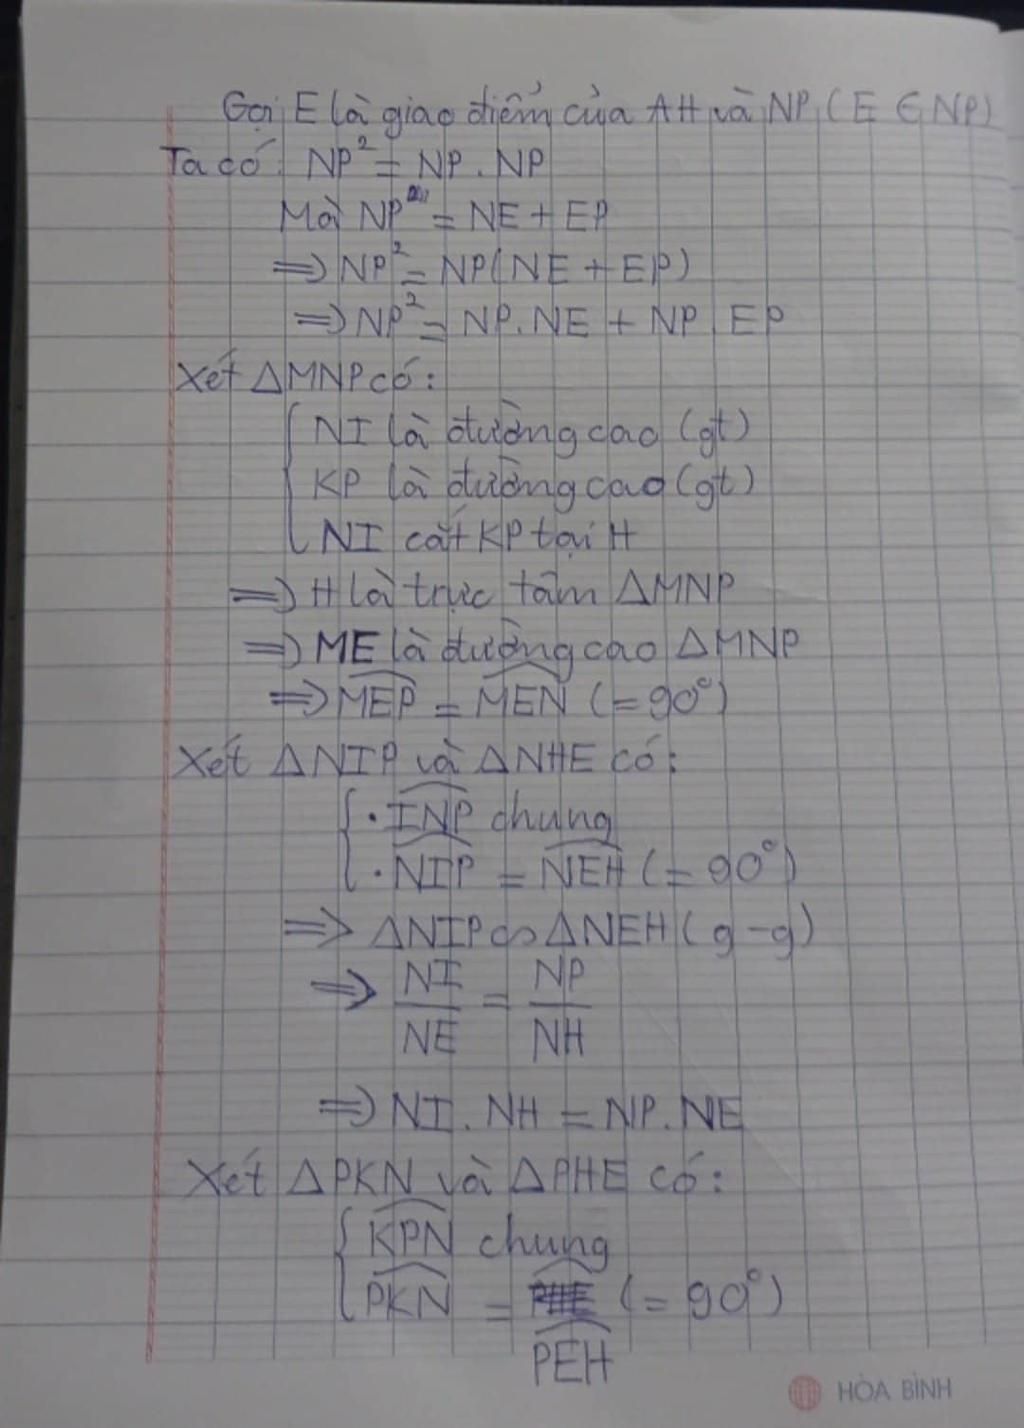 Gọi E là giao điểm của AH và NP ( E ∈ NP)
Ta có: NP² = NP . NP
Mà NP = NE + EP
⇒ NP² = NP(NE + EP)
⇒ NP² = NP.NE + NP.EP
Xét ΔMNP có:
NI là đường cao (gt)
KP là đường cao (gt)
NI cắt KP tại H
⇒ H là trực tâm ΔMNP
⇒ ME là đường cao ΔMNP
⇒ MEP = MEN (= 90°)
Xét ΔNIP và ΔNHE có:
· INP chung
· NIP = NEH (= 90°)
⇒ ΔNIP ∽ ΔNEH ( g - g)
⇒ NI/NE = NP/NH
⇒ NI . NH = NP.NE
Xét ΔPKN và ΔPHE có:
KPN chung
PKN = PEH (= 90°)
HÒA BÌNH